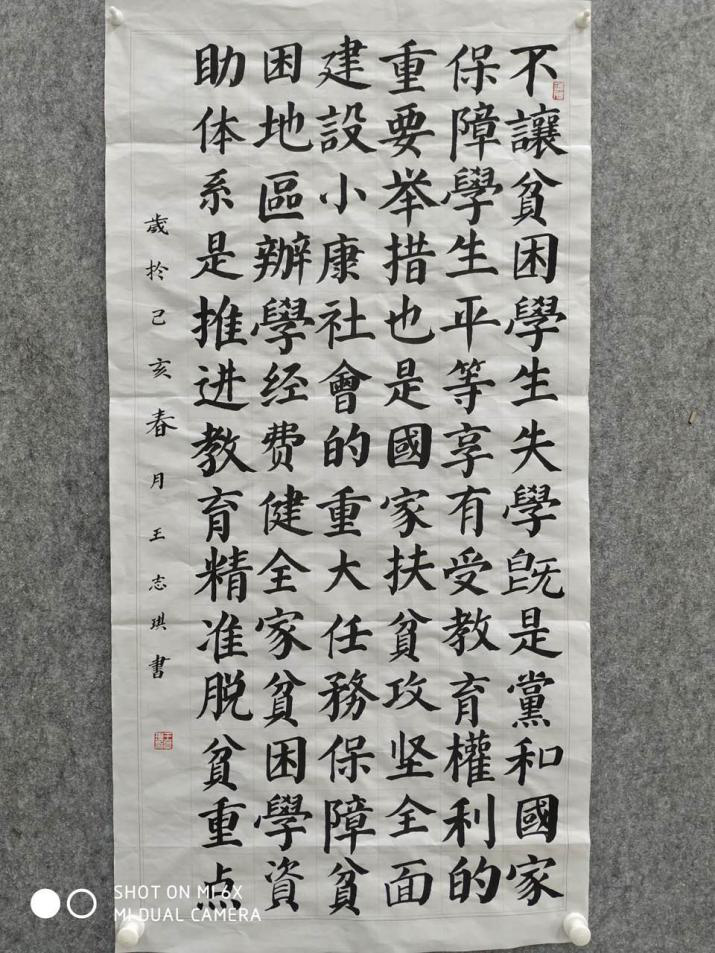 不讓貧困學生失學既是黨和國家
保障學生平等享有受教育權利的
重要举措也是國家扶貧攻坚全面
建設小康社會的重大任務保障貧
困地區辦學经费健全家貧困學資
助体系是推进教育精准脱貧重点
歲於己亥春月王志琪書
SHOT ON MI 6X
MI DUAL CAMERA